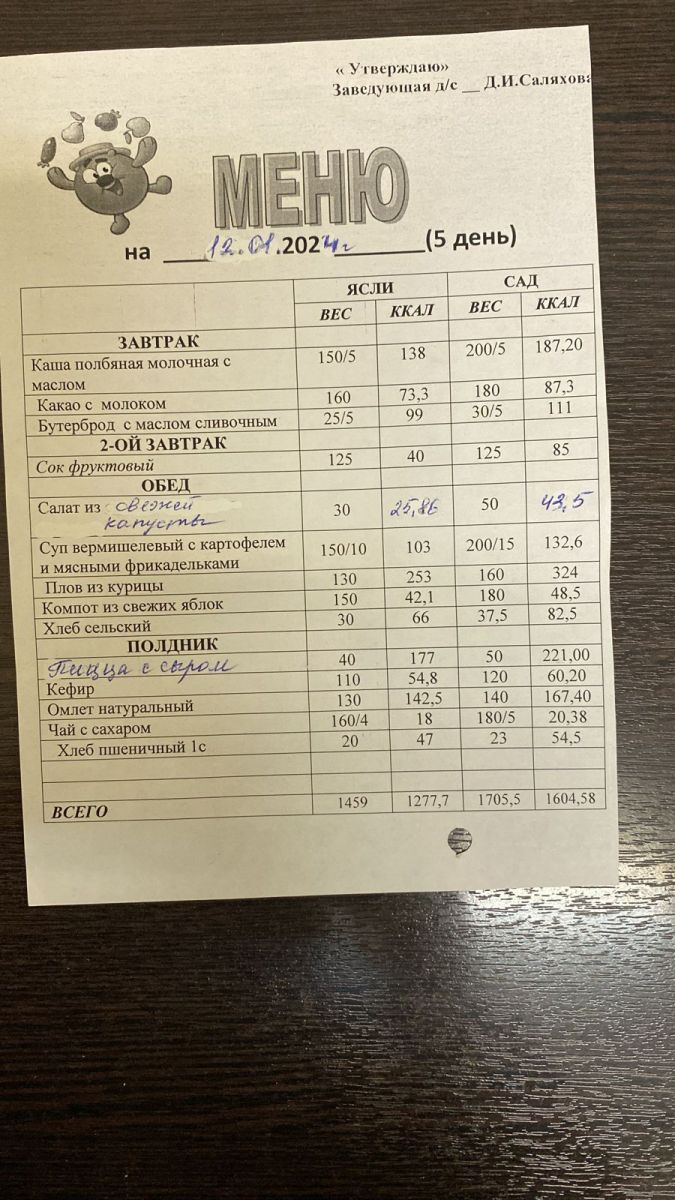 « Утверждаю»
Заведующая д/с __ Д.И.Саляхова
МЕНЮ
на ____12.01.2024г________(5 день)
ЯСЛИ САД
ВЕС ККАЛ ВЕС ККАЛ
ЗАВТРАК
Каша полбяная молочная с маслом 150/5 138 200/5 187,20
Какао с молоком 160 73,3 180 87,3
Бутерброд с маслом сливочным 25/5 99 30/5 111
2-ОЙ ЗАВТРАК
Сок фруктовый 125 40 125 85
ОБЕД
Салат из свежей капусты 30 25,86 50 43,5
Суп вермишелевый с картофелем и мясными фрикадельками 150/10 103 200/15 132,6
Плов из курицы 130 253 160 324
Компот из свежих яблок 150 42,1 180 48,5
Хлеб сельский 30 66 37,5 82,5
ПОЛДНИК
Пицца с сыром 40 177 50 221,00
Кефир 110 54,8 120 60,20
Омлет натуральный 130 142,5 140 167,40
Чай с сахаром 160/4 18 180/5 20,38
Хлеб пшеничный 1с 20 47 23 54,5
ВСЕГО 1459 1277,7 1705,5 1604,58